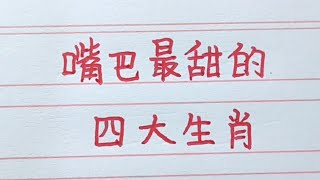 嘴巴最甜的
四大生肖